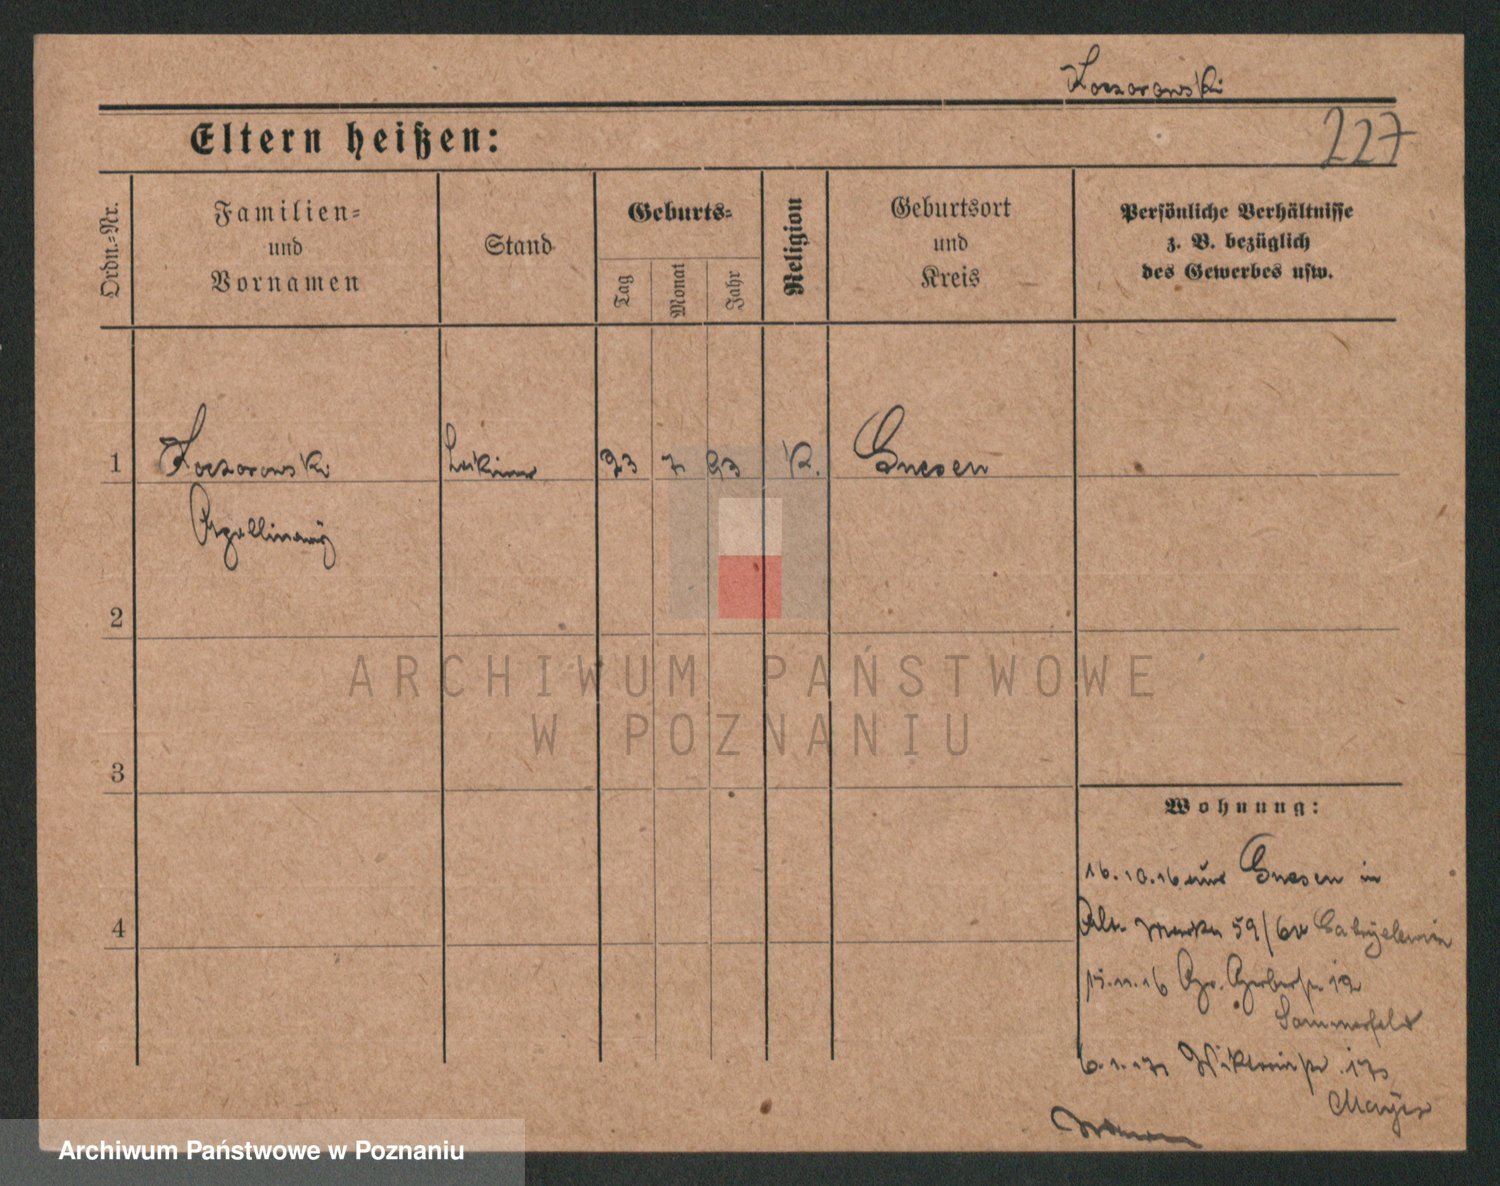 Koczorowski
227
Eltern heißen:
Ordn.-Nr.
Familien-
und
Vornamen
Stand
Geburts-
Tag
Monat
Jahr
Religion
Geburtsort
und
Kreis
Persönliche Verhältnisse
z. B. bezüglich
des Gewerbes usw.
1
Koczorowski
23
7
93
K.
Gnesen
Apollinary
2
ARCHIWUM PAŃSTWOWE
W POZNANIU
3
Wohnung:
16.10.16 Gnesen in
4
Alt. Markt 59/60
15.11.16 Gr. Gerberstr. 19
Sommerfeld
6.1.17 Wiktoriastr.
Archiwum Państwowe w Poznaniu